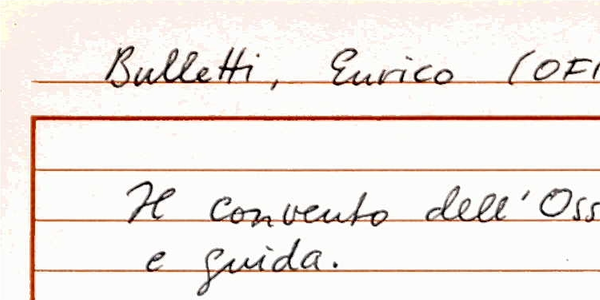 Bulletti, Enrico (OFM
Il convento dell'Oss
e guida.